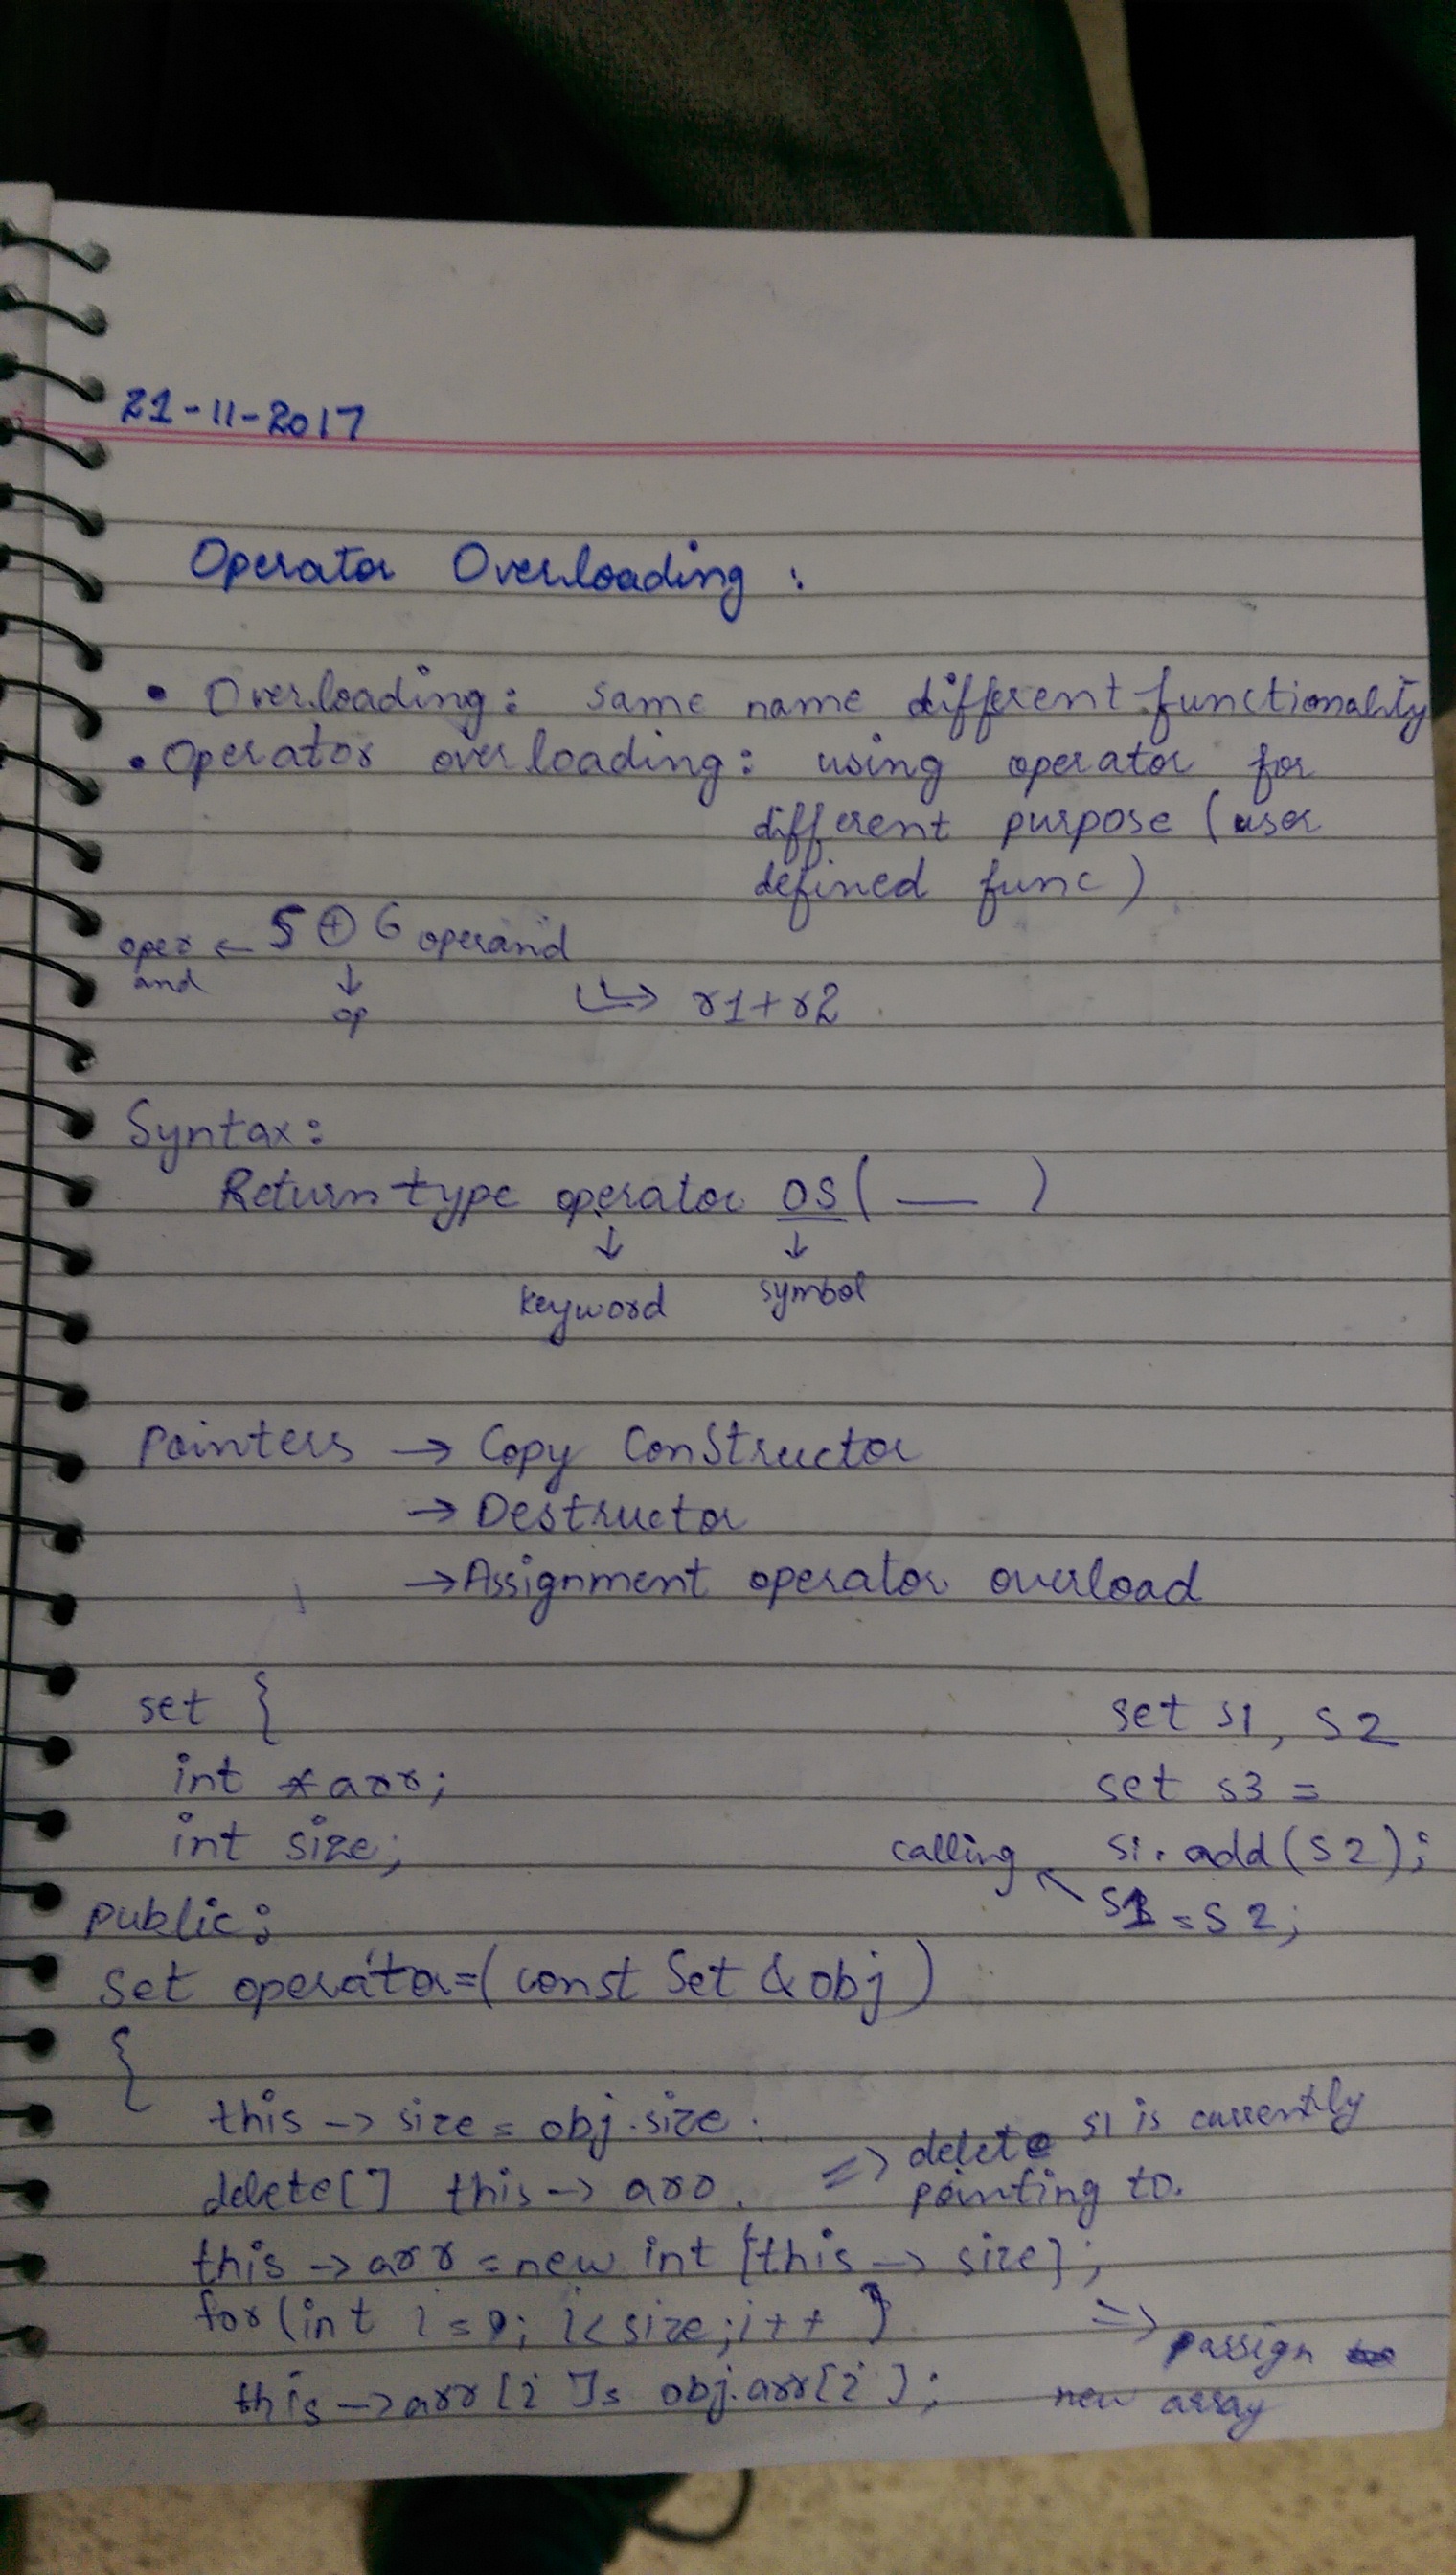 21-11-2017
Operator Overloading :
• Overloading: same name different functionality
• Operator overloading: using operator for
different purpose (user
defined func)
oper ← 5 + 6 operand
and ↓
op ↳ r1+r2
Syntax:
Return type operator OS( __ )
↓ ↓
keyword symbol
Pointers → Copy Constructor
→ Destructor
→ Assignment operator overload
set { set s1, s2
int *arr; set s3 =
int size; calling s1.add(s2);
public: = s2;
Set operator=(const Set &obj)
{
this -> size = obj.size.
delete[] this -> arr. => delete s1 is currently
pointing to.
this -> arr = new int [this -> size];
for(int i=0; i<size;i++ ) =>
assign
this ->arr[i]= obj.arr[i]; new array